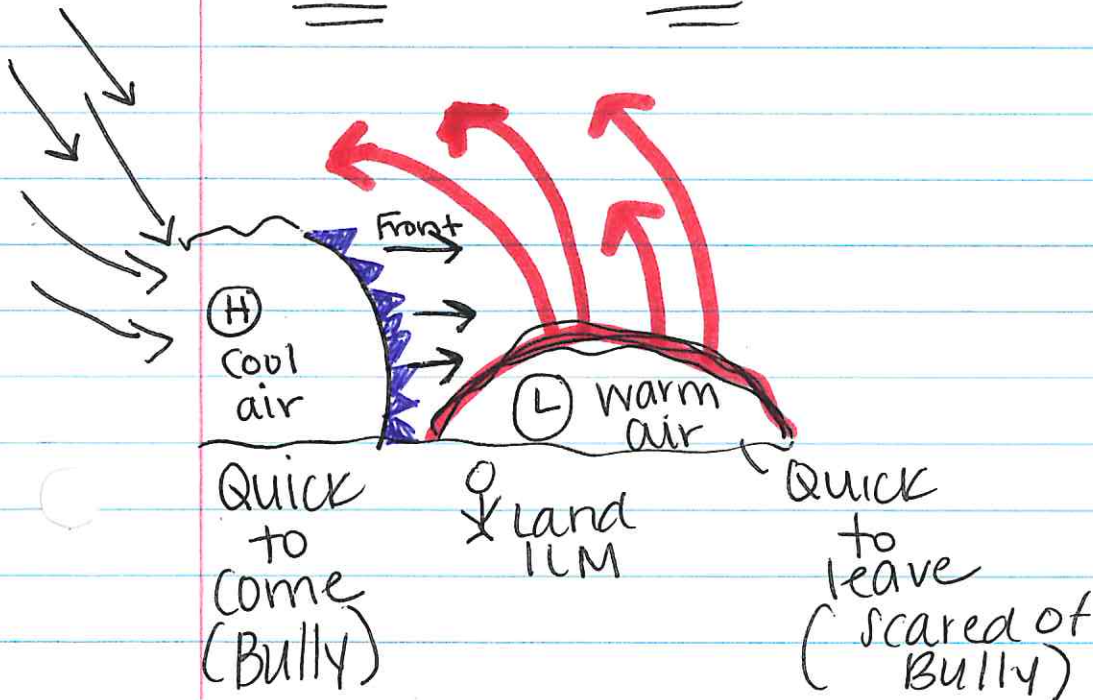 Front
H
cool
air
L warm
air
Quick
to
come
(Bully)
Land
ILM
Quick
to
leave
(scared of
Bully)